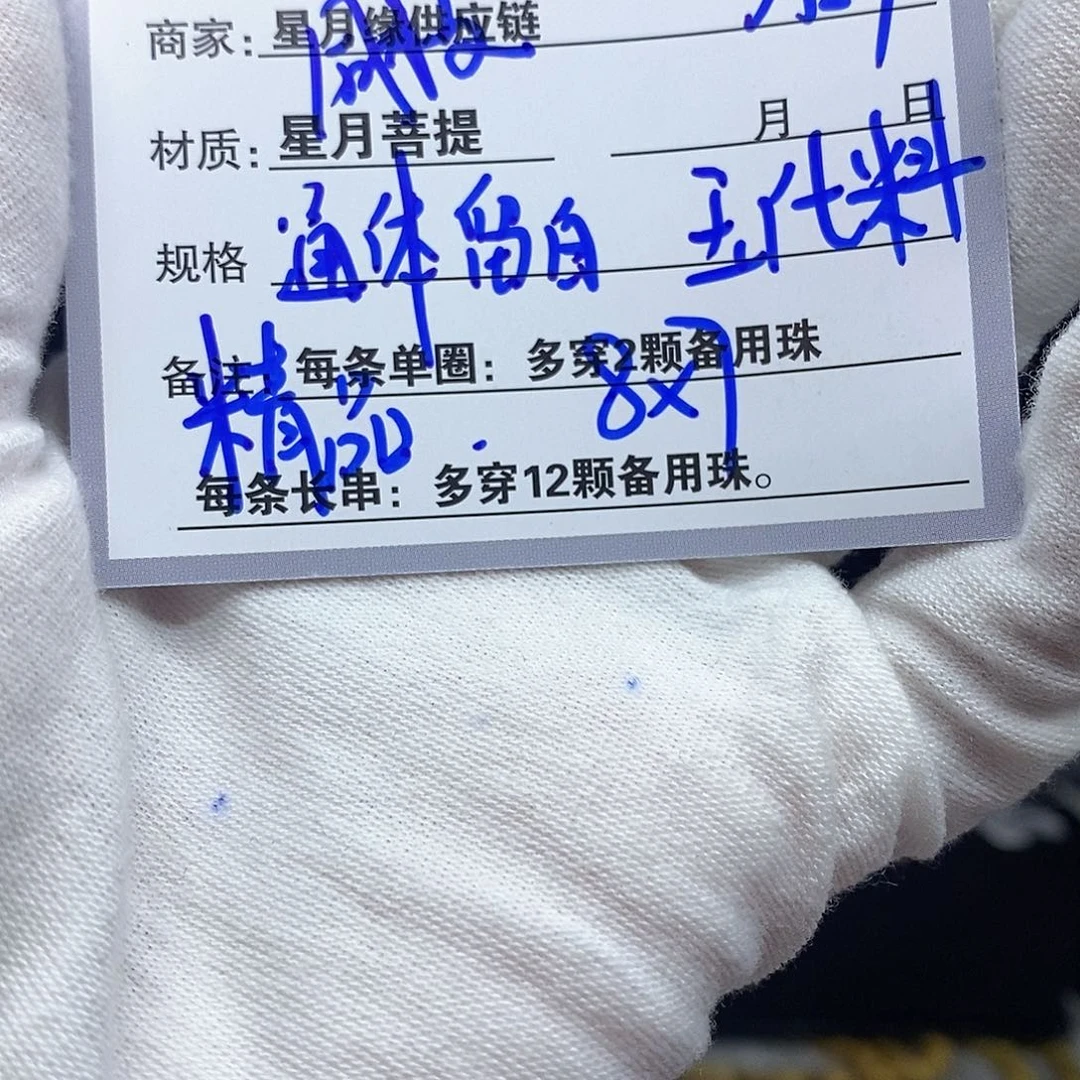 商家:星月缘供应链
材质:星月菩提 月 日
通体留白 玉代料
规格
备注:每条单圈:多穿2颗备用珠
精品. 8x7
每条长串:多穿12颗备用珠。